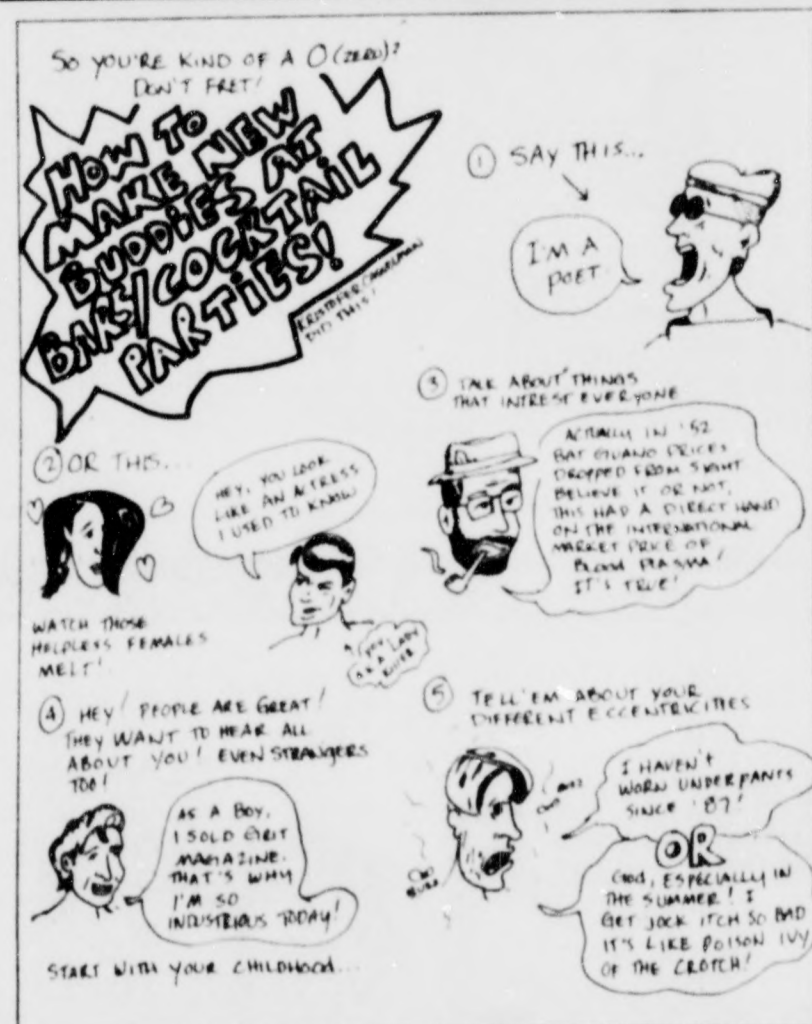 SO YOU'RE KIND OF A O (ZERO)?
DON'T FRET!
HOW TO
MAKE NEW
BUDDIES AT
BARS/COCKTAIL
PARTIES!
DID THIS!
① SAY THIS...
I'M A
POET.
② OR THIS...
HEY, YOU LOOK
LIKE AN ACTRESS
I USED TO KNOW
WATCH THOSE
HELPLESS FEMALES
MELT!
YOU
A LADY
KILLER
③ TALK ABOUT THINGS
THAT INTREST EVERYONE
ACTUALLY IN '52
BAT GUANO PRICES
DROPPED FROM SIGHT
BELIEVE IT OR NOT,
THIS HAD A DIRECT HAND
ON THE INTERNATIONAL
MARKET PRICE OF
BLOOD PLASMA!
IT'S TRUE!
④ HEY! PEOPLE ARE GREAT!
THEY WANT TO HEAR ALL
ABOUT YOU! EVEN STRANGERS
TOO!
AS A BOY,
I SOLD GRIT
MAGAZINE.
THAT'S WHY
I'M SO
INDUSTRIOUS TODAY!
START WITH YOUR CHILDHOOD...
⑤ TELL 'EM ABOUT YOUR
DIFFERENT ECCENTRICITIES
I HAVEN'T
WORN UNDERPANTS
SINCE '87!
OR
GOD, ESPECIALLY IN
THE SUMMER! I
GET JOCK ITCH SO BAD
IT'S LIKE POISON IVY
OF THE CROTCH!